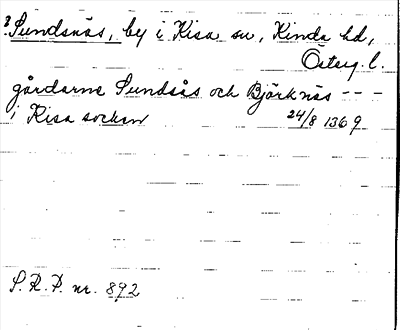 ? Sundsnäs, by i Kisa sn, Kinda hd,
Österg. l.
gårdarne Sundsås och Björknäs - - -
i Kisa socken 24/8 1369
S.R.P. nr. 892